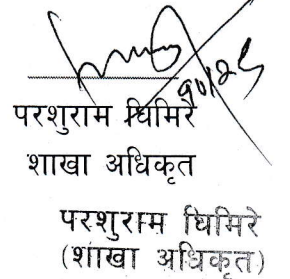 १०।२८
परशुराम घिमिरे
शाखा अधिकृत
परशुराम घिमिरे
(शाखा अधिकृत)